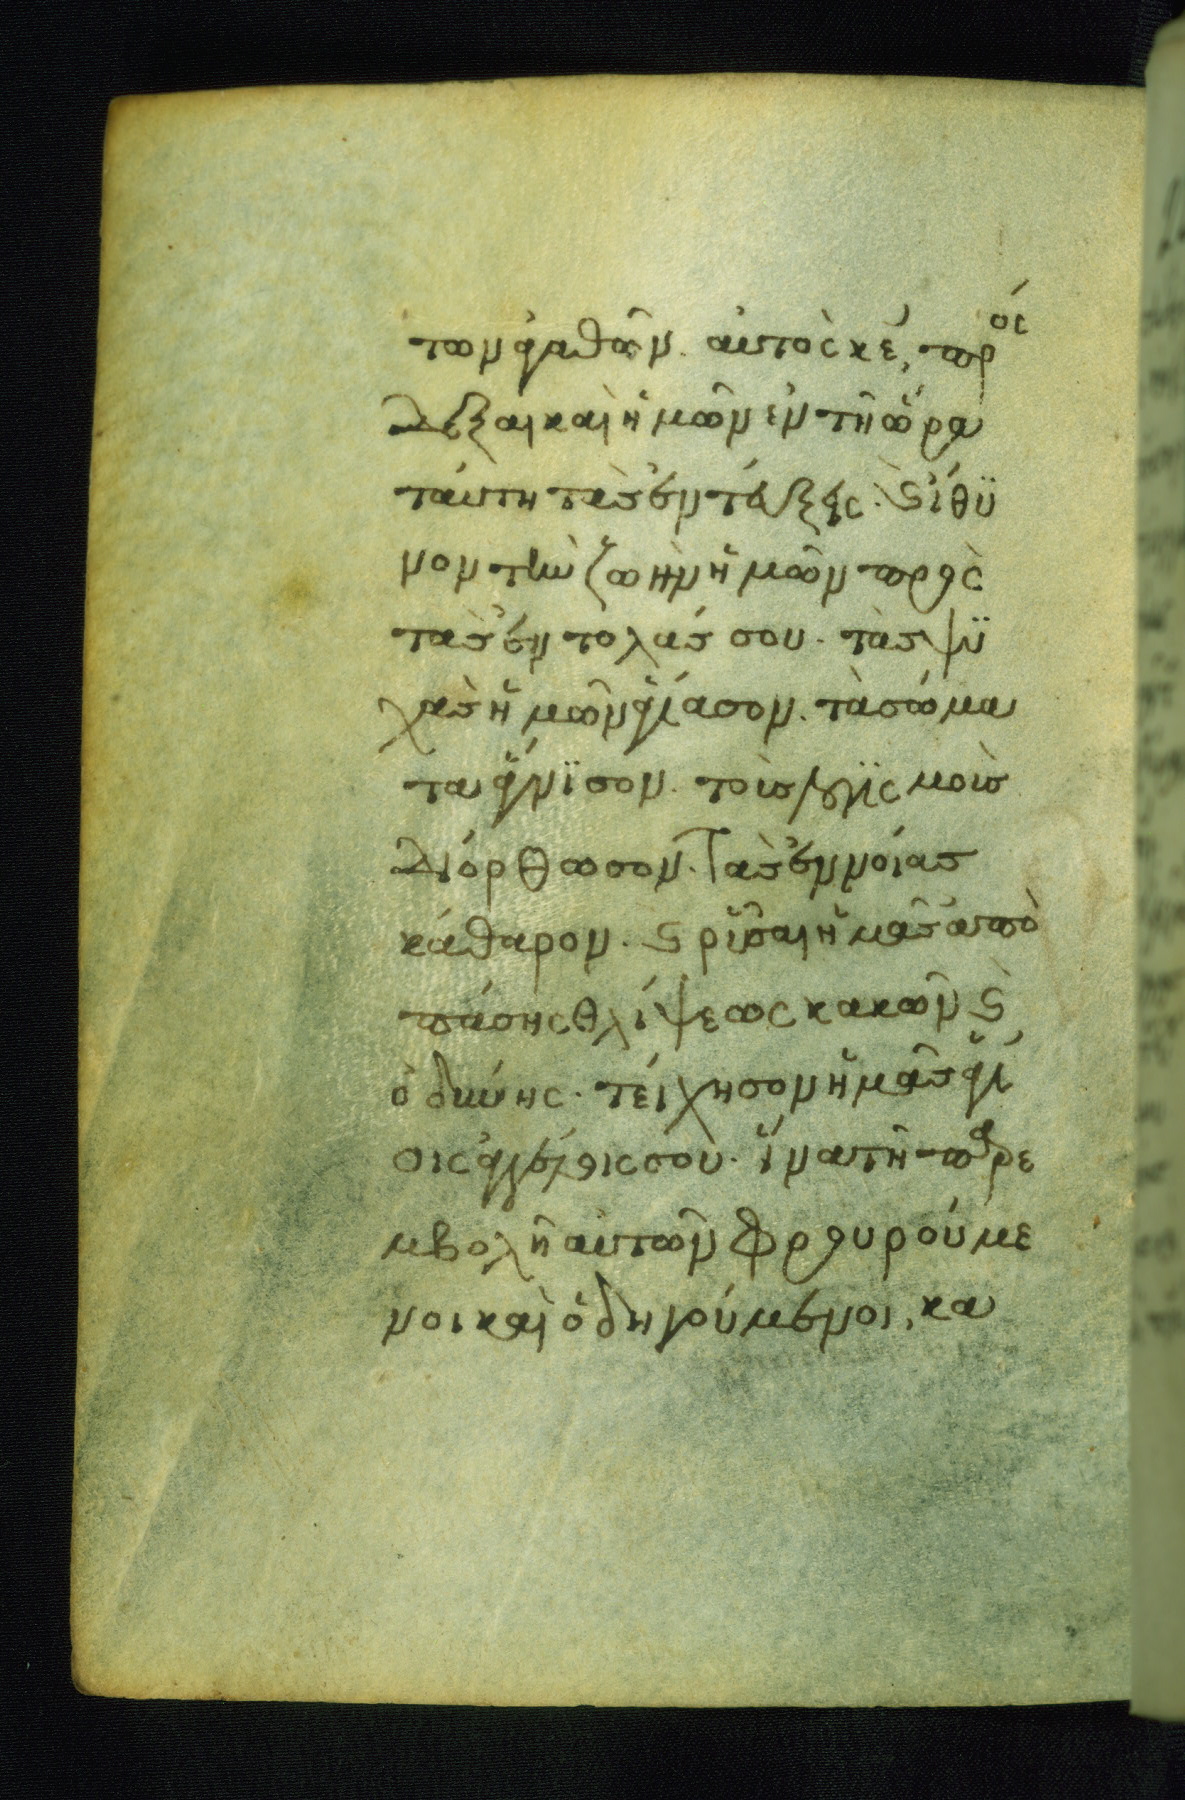 των ἀγαθῶν. αὐτὸς κε, πρός
δεξαι καὶ ἡμῶν ἐν τῆ ὥρα
τάυτη τὰς ἐντέυξεις. ϛ ἴθϋ
νον την ζωὴν ἡμῶν πρὸς
τὰς ἐντολάς σου. τὰς ψϋ
χὰς ἡμῶν ἁγίασον. τὰ σώμα
τα ἅγνϊσον. τοὺς λογϊςμοὺς
διόρθωσον. Τὰς ἐννοίας
κάθαρον. ϛ ρῦσαι ἡμᾶς ἀπὸ
πάσης θλίψεως κακῶν ϛ
ὀδύνης. τείχησον ἡμᾶς ἁγί
οις ἀγγέλοις σου. ἵνα τῆ παρε
μβολῆ αὐτῶν φρουρούμε
νοι καὶ ὁδηγούμενοι, κα